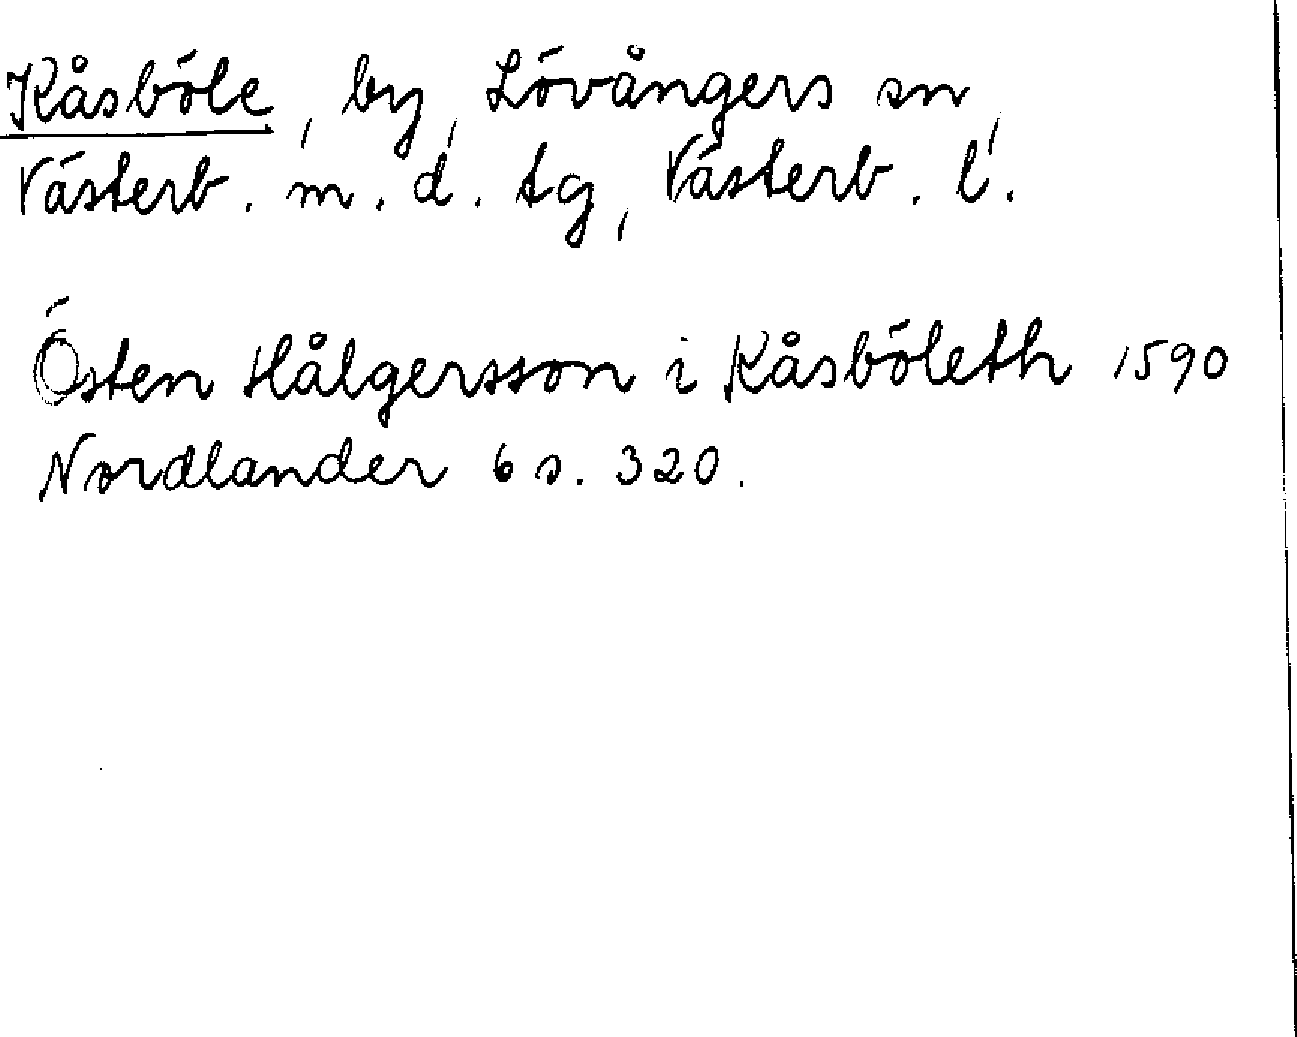 Kåsböle, by, Lövångers sn,
Västerb. m. d. tg, Västerb. l.
Östen Hålgersson i Kåsböleth 1590
Nordlander 6 s. 320.